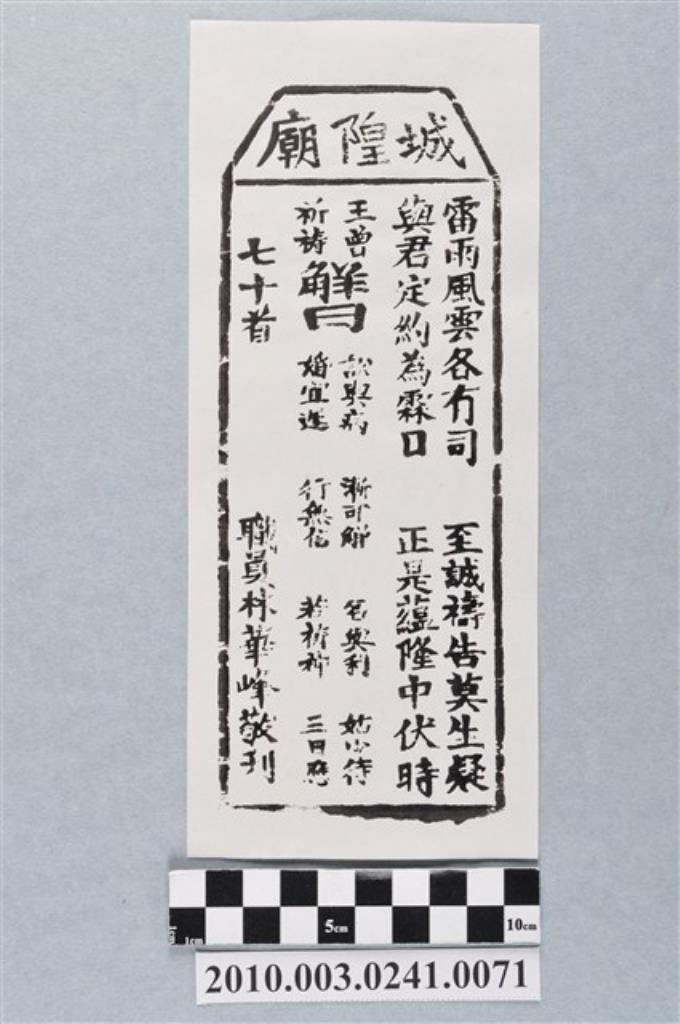 城隍廟
雷雨風雲各有司 至誠禱告莫生凝
與君定約為霖口 正是蘊隆中伏時
王曾
祈禱
解曰
訟與病 漸可解 名與利 姑少待
婚宜遲 行無信 若祈神 三日應
七十首 職員林華峰敬刊
1cm 5cm 10cm
2010.003.0241.0071